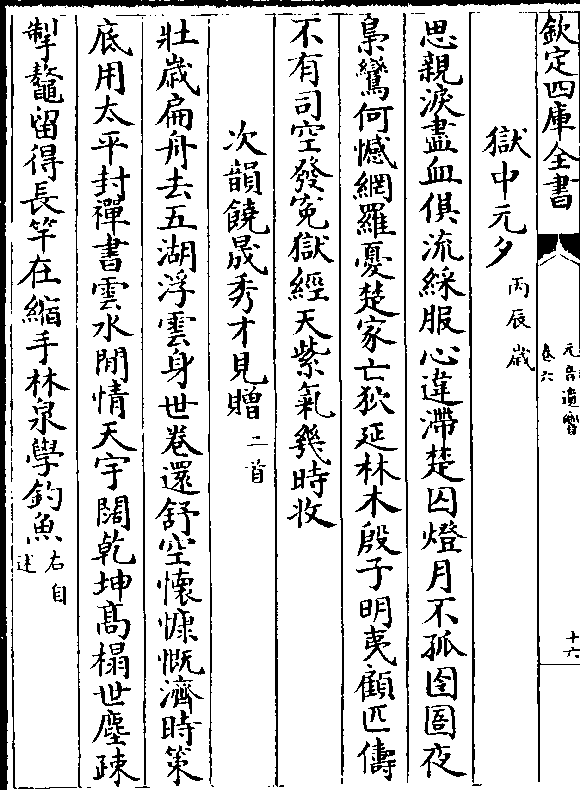 欽定四庫全書
元音遺響
卷六
十六
獄中元夕丙辰歲
思親淚盡血俱流綵服心違滯楚囚燈月不孤囹圄夜
梟鸞何憾網羅憂楚家亡狄延林木殷子明夷顧匹儔
不有司空發寃獄經天紫氣幾時收
次韻饒晟秀才見贈二首
壯歲扁舟去五湖浮雲身世卷還舒空懷慷慨濟時策
底用太平封禪書雲水閒情天宇闊乾坤髙榻世塵疎
掣鼇留得長竿在縮手林泉學釣魚右自述